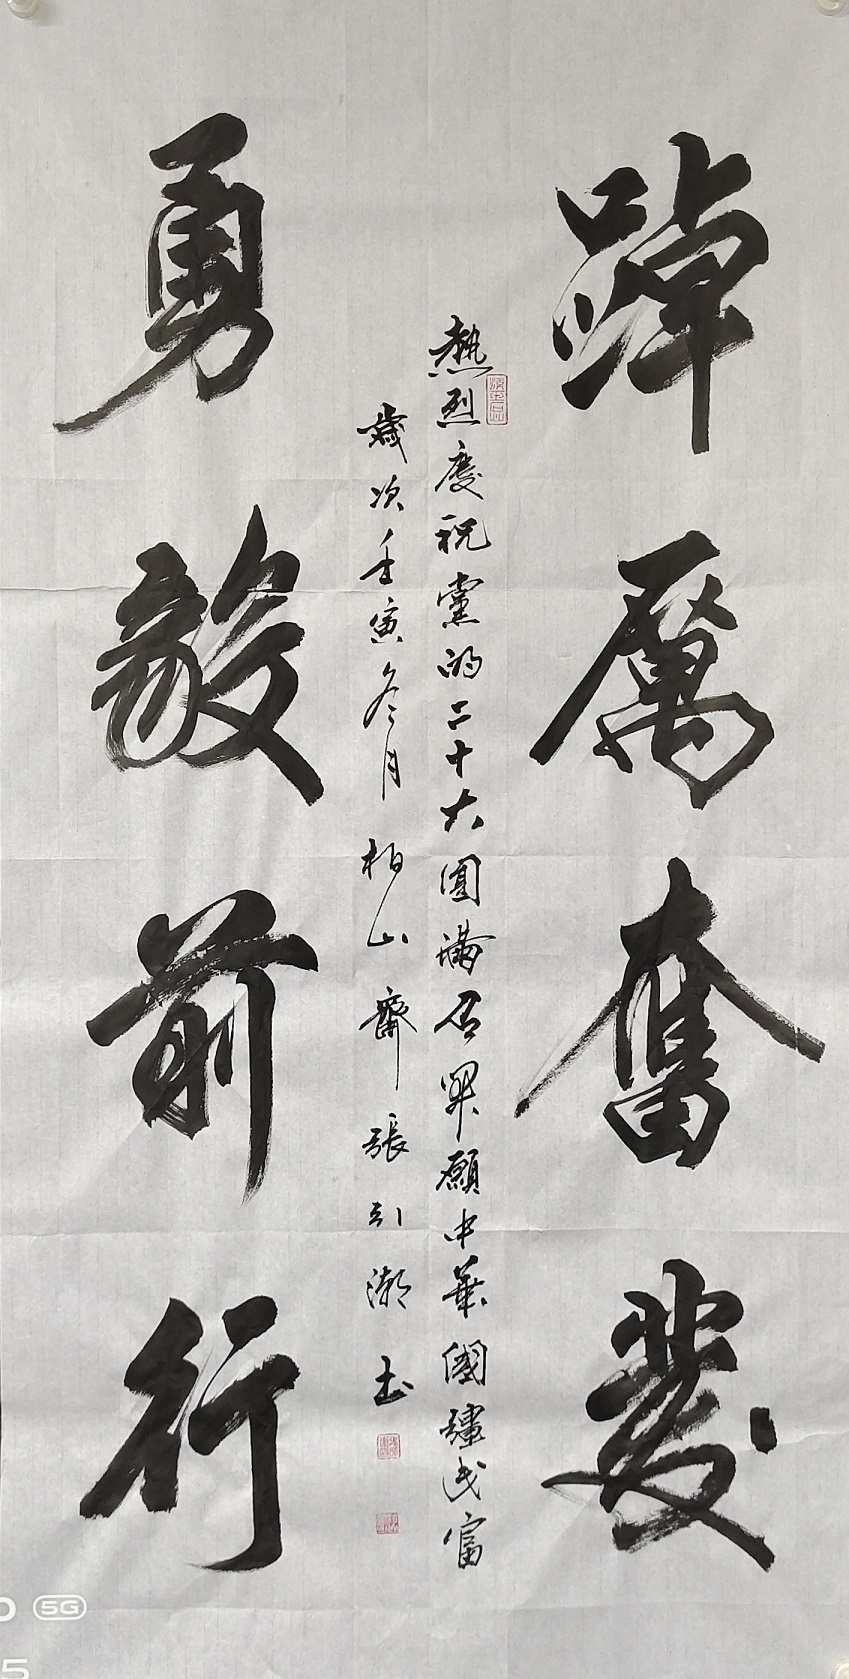 踔厲奮發
熱烈慶祝黨的二十大圓滿召開願中華國強民富
歲次壬寅冬月柏山齋張引潮書
勇毅前行
5G
5